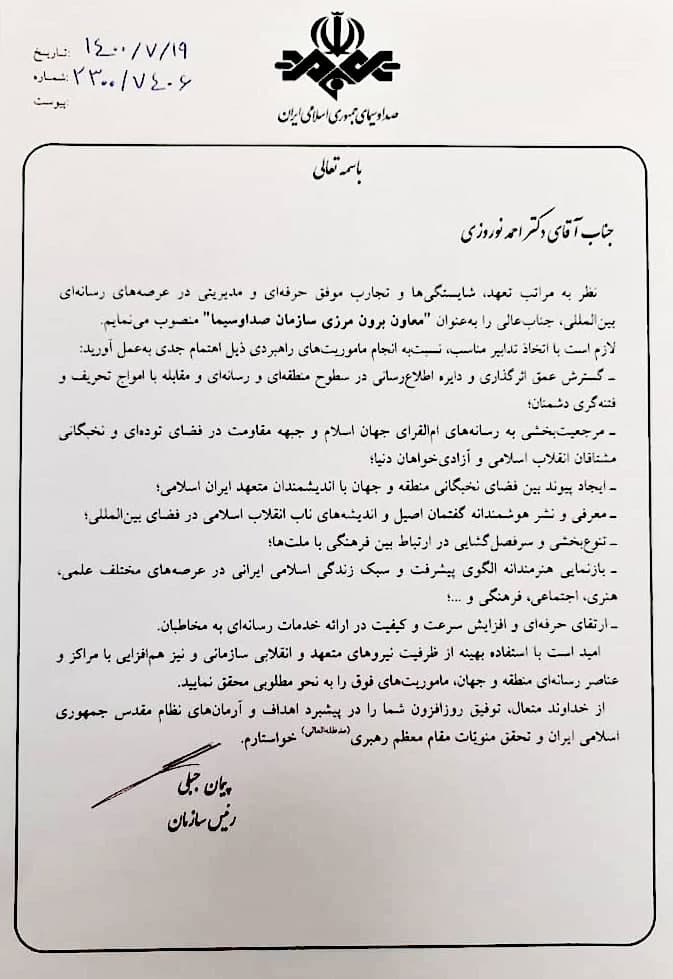 تاریخ: ۱۴۰۰/۷/۱۹
شماره: ۲۳۰۰/۷۴۰۶
پیوست:
صدا و سیمای جمهوری اسلامی ایران
باسمه تعالی
جناب آقای دکتر احمد نوروزی
نظر به مراتب تعهد، شایستگی‌ها و تجارب موفق حرفه‌ای و مدیریتی در عرصه‌های رسانه‌ای
بین‌المللی، جناب‌عالی را به‌عنوان "معاون برون مرزی سازمان صداوسیما" منصوب می‌نمایم.
لازم است با اتخاذ تدابیر مناسب، نسبت‌به انجام ماموریت‌های راهبردی ذیل اهتمام جدی به‌عمل آورید:
ـ گسترش عمق اثرگذاری و دایره اطلاع‌رسانی در سطوح منطقه‌ای و رسانه‌ای و مقابله با امواج تحریف و
فتنه‌گری دشمنان؛
ـ مرجعیت‌بخشی به رسانه‌های ام‌القرای جهان اسلام و جبهه مقاومت در فضای توده‌ای و نخبگانی
مشتاقان انقلاب اسلامی و آزادی‌خواهان دنیا؛
ـ ایجاد پیوند بین فضای نخبگانی منطقه و جهان با اندیشمندان متعهد ایران اسلامی؛
ـ معرفی و نشر هوشمندانه گفتمان اصیل و اندیشه‌های ناب انقلاب اسلامی در فضای بین‌المللی؛
ـ تنوع‌بخشی و سرفصل‌گشایی در ارتباط بین فرهنگی با ملت‌ها؛
ـ بازنمایی هنرمندانه الگوی پیشرفت و سبک زندگی اسلامی ایرانی در عرصه‌های مختلف علمی،
هنری، اجتماعی، فرهنگی و ...؛
ـ ارتقای حرفه‌ای و افزایش سرعت و کیفیت در ارائه خدمات رسانه‌ای به مخاطبان.
امید است با استفاده بهینه از ظرفیت نیروهای متعهد و انقلابی سازمانی و نیز هم‌افزایی با مراکز و
عناصر رسانه‌ای منطقه و جهان، ماموریت‌های فوق را به نحو مطلوبی محقق نمایید.
از خداوند متعال، توفیق روزافزون شما را در پیشبرد اهداف و آرمان‌های نظام مقدس جمهوری
اسلامی ایران و تحقق منویّات مقام معظم رهبری(مدظله‌العالی) خواستارم.
پیمان جبلی
رئیس سازمان